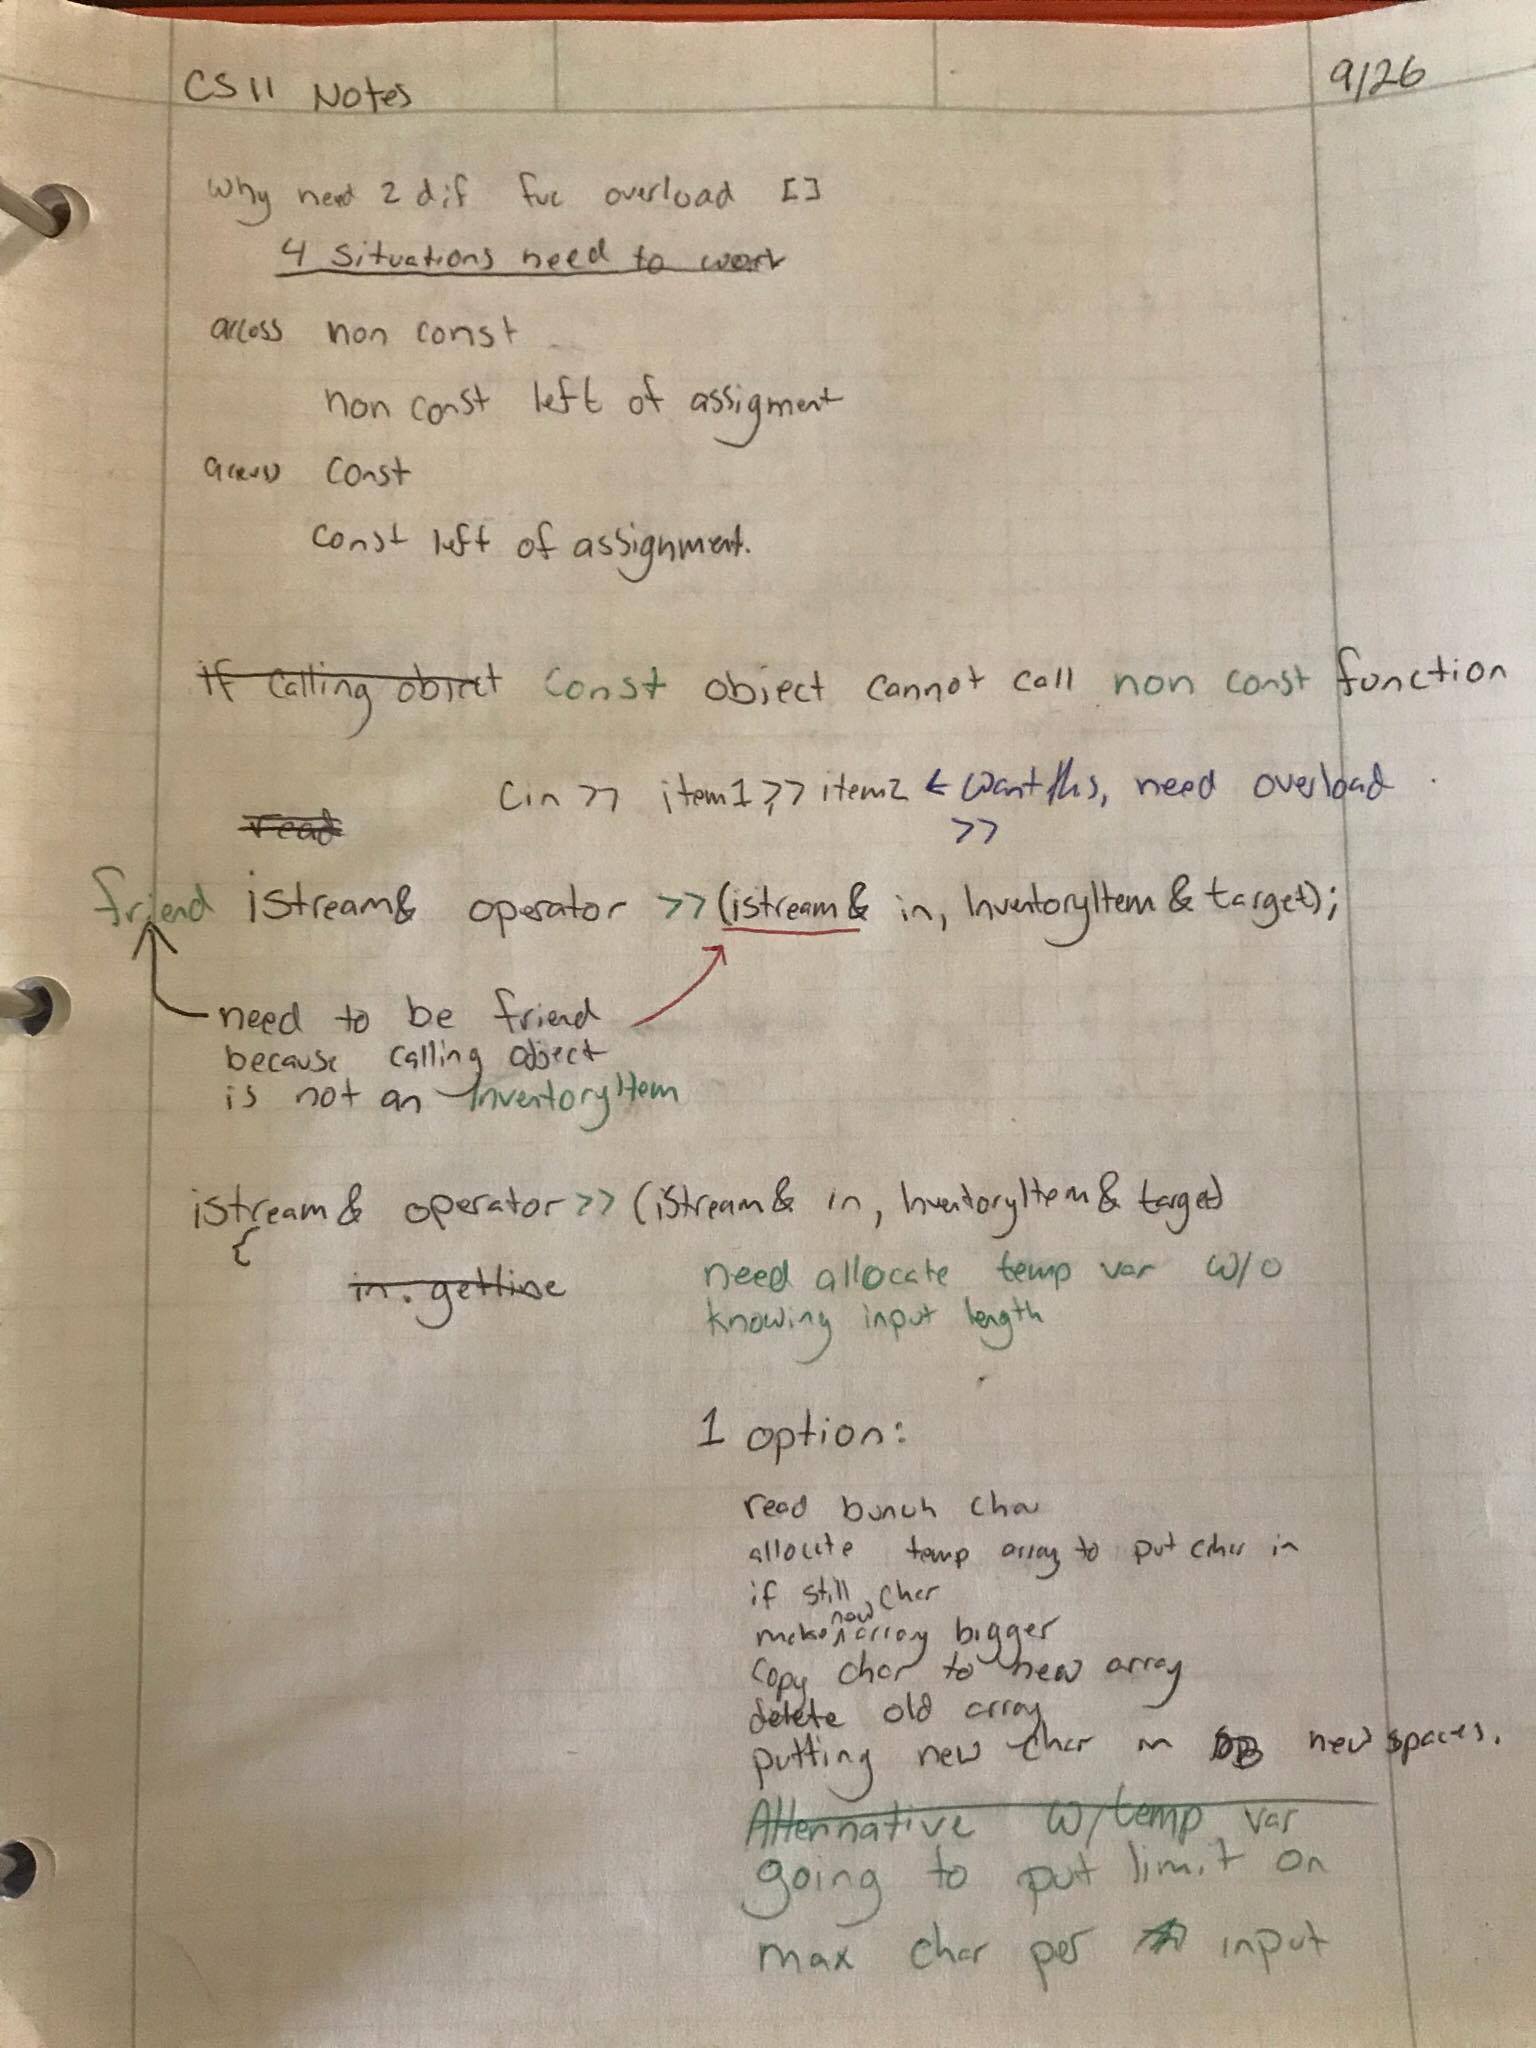 CS 11 Notes
9/26
Why need 2 dif fuc overload []
4 situations need to work
access non const
non const left of assigment
access const
const left of assignment.
If calling object const object cannot call non const function
cin >> item1 >> item2 ← want this, need overload
>>
read
friend istream& operator >> (istream& in, InventoryItem & target);
need to be friend
because calling object
is not an InventoryItem
istream& operator >> (istream& in, InventoryItem & target)
{
in.getline
need allocate temp var w/o
knowing input length
1 option:
read bunch char
allocate temp array to put char in
if still char
make new array bigger
copy char to new array
delete old array
putting new char in new spaces.
Alternative w/ temp var
going to put limit on
max char per input